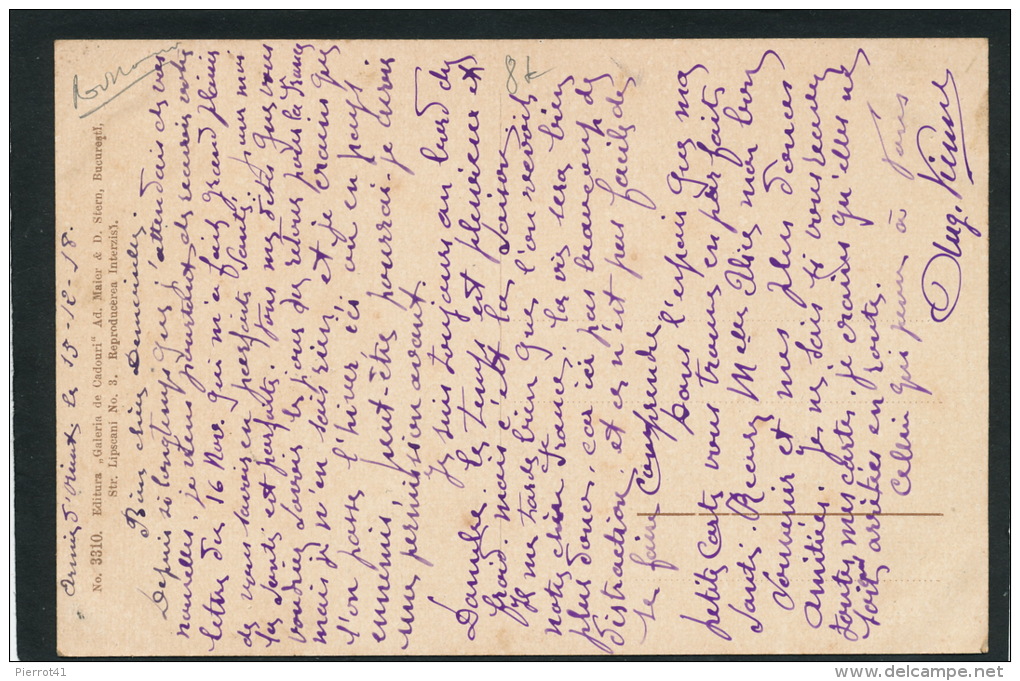 Roumanie
armée d'orient le 15-12-18.
No. 3310. Editura „Galeria de Cadouri" Ad. Maier & D. Stern, Bucureşti,
Str. Lipscani No. 3. Reproducerea Interzisă.
Bien chère Demoiselle
Depuis si longtemps que j'attendais de vos
nouvelles, je viens pourtant de recevoir votre
lettre du 16 Nov. qui m'a fait grand plaisir
de vous savoir en parfaite Santé, pour moi
la Santé est parfaite. Vous me dites que vous
voudriez savoir le jour du retour pour la France
mais je n'en sais rien, et je crains que
l'on passe l'hiver ici ou en pays
ennemis, peut-être pourrais-je avoir
une permission avant.
Je suis toujours au bord du
Danube le temps est pluvieux et
froid. mais c'est la Saison.
Il me tarde bien que l'on revoit
notre chère France, la vie sera bien
plus douce, car ici pas beaucoup de
distraction, et ce n'est pas facile de
se faire Comprendre
Dans l'espoir que ma
petite Carte vous trouve en parfaite
Santé. Recevez Melle Alice mon bon
Souvenir et mes plus douces
amitiées. Je ne sais si vous recevez
toutes mes cartes, je crains qu'elles ne
soient arrêtées en route.
Celui qui pense à vous
Aug.
8k
Pierrot41
delcampe.net